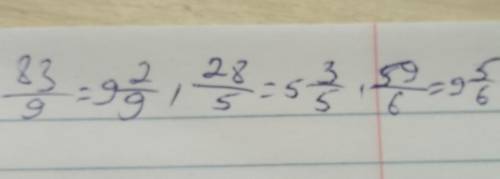 83/9 = 9 2/9 , 28/5 = 5 3/5 , 59/6 = 9 5/6